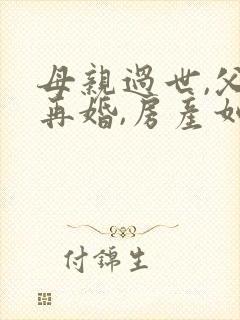 母親過世,父
再婚,房產如
付錦生